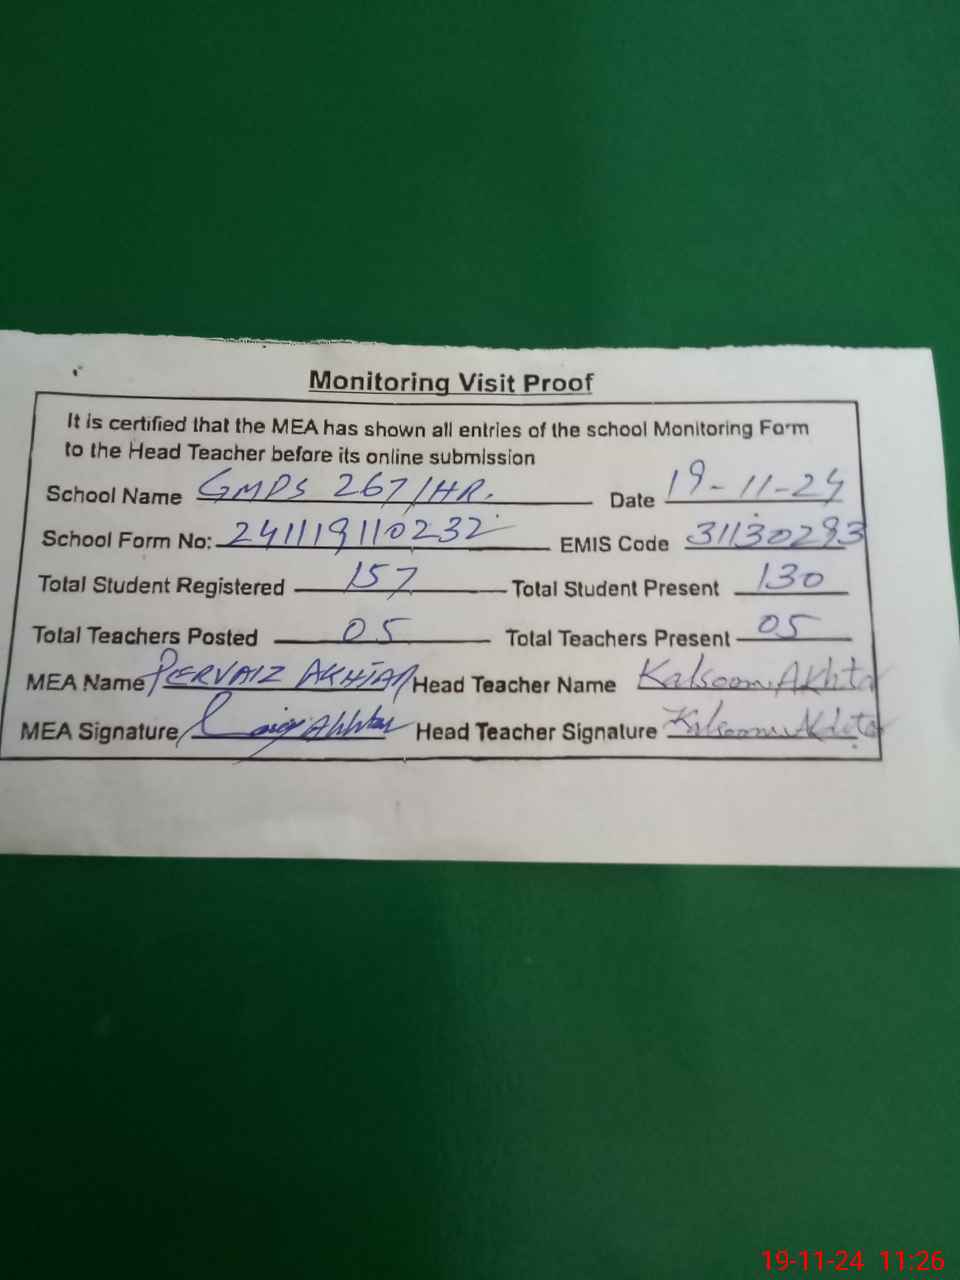 Monitoring Visit Proof
It is certified that the MEA has shown all entries of the school Monitoring Form
to the Head Teacher before its online submission
School Name GMPS 267/HR. Date 19-11-24
School Form No: 241119110232 EMIS Code 31130293
Total Student Registered 157 Total Student Present 130
Total Teachers Posted 05 Total Teachers Present 05
MEA Name PERVAIZ AKHTAR Head Teacher Name Kalsoom Akhtar
MEA Signature Akhtar Head Teacher Signature Kalsoom Akhtar
19-11-24 11:26